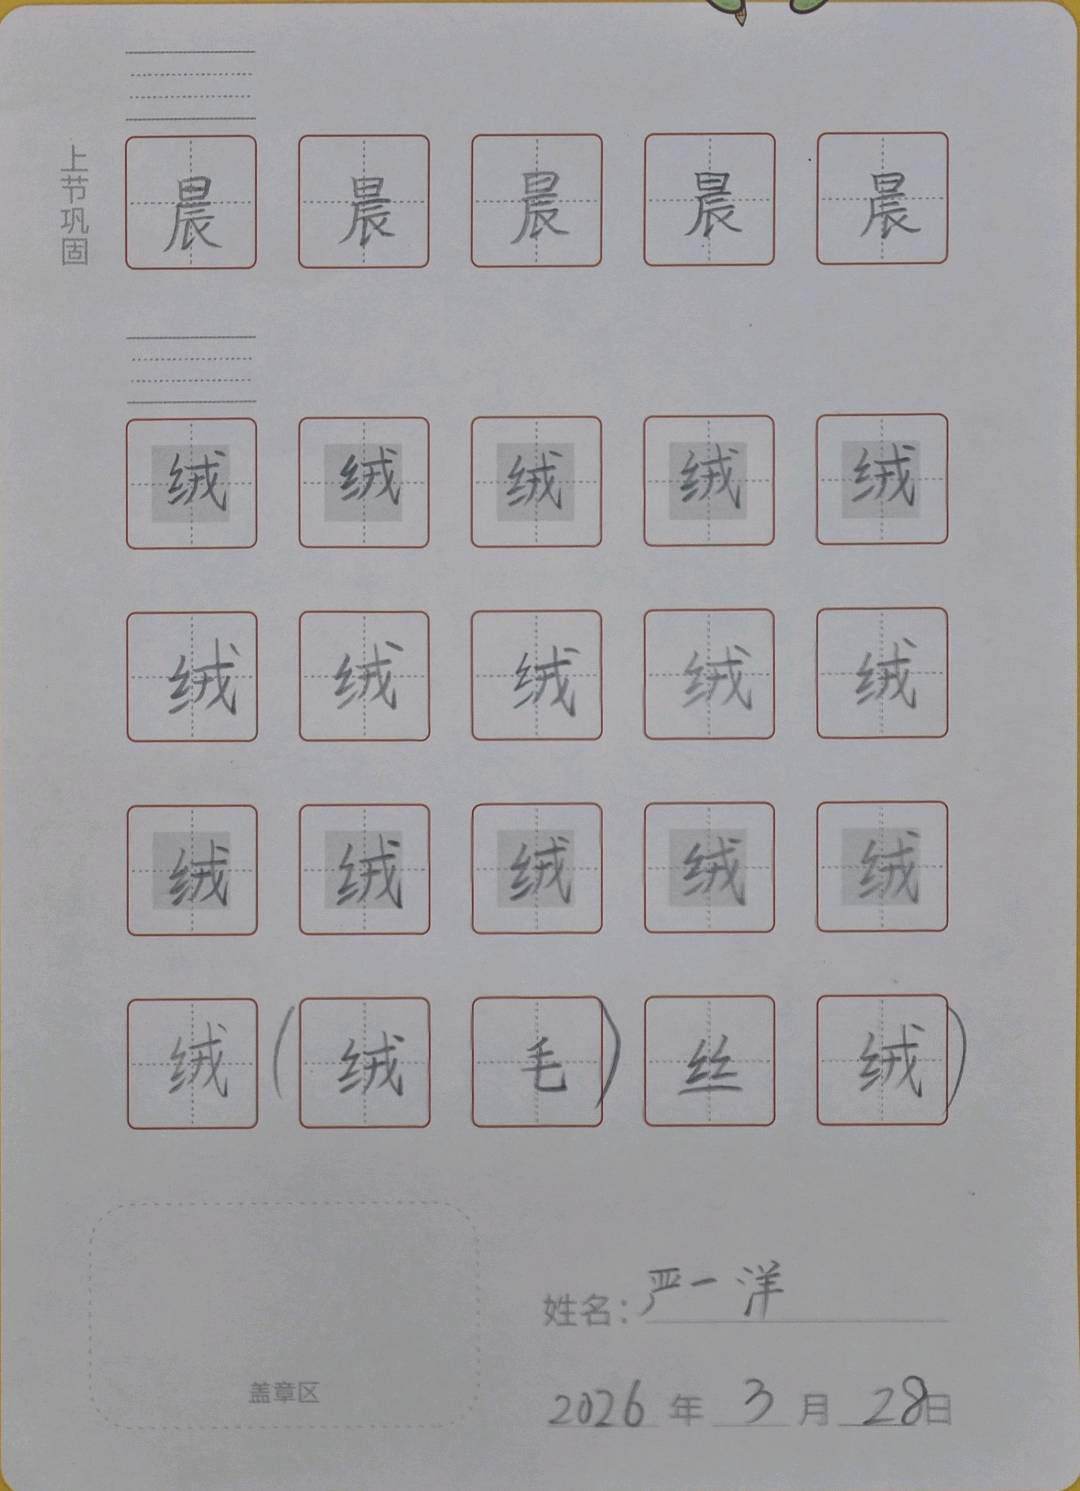 上节巩固
晨 晨 晨 晨 晨
绒 绒 绒 绒 绒
绒 绒 绒 绒 绒
绒 绒 绒 绒 绒
绒(绒毛)丝绒)
盖章区
姓名：严一洋
2026年3月28日